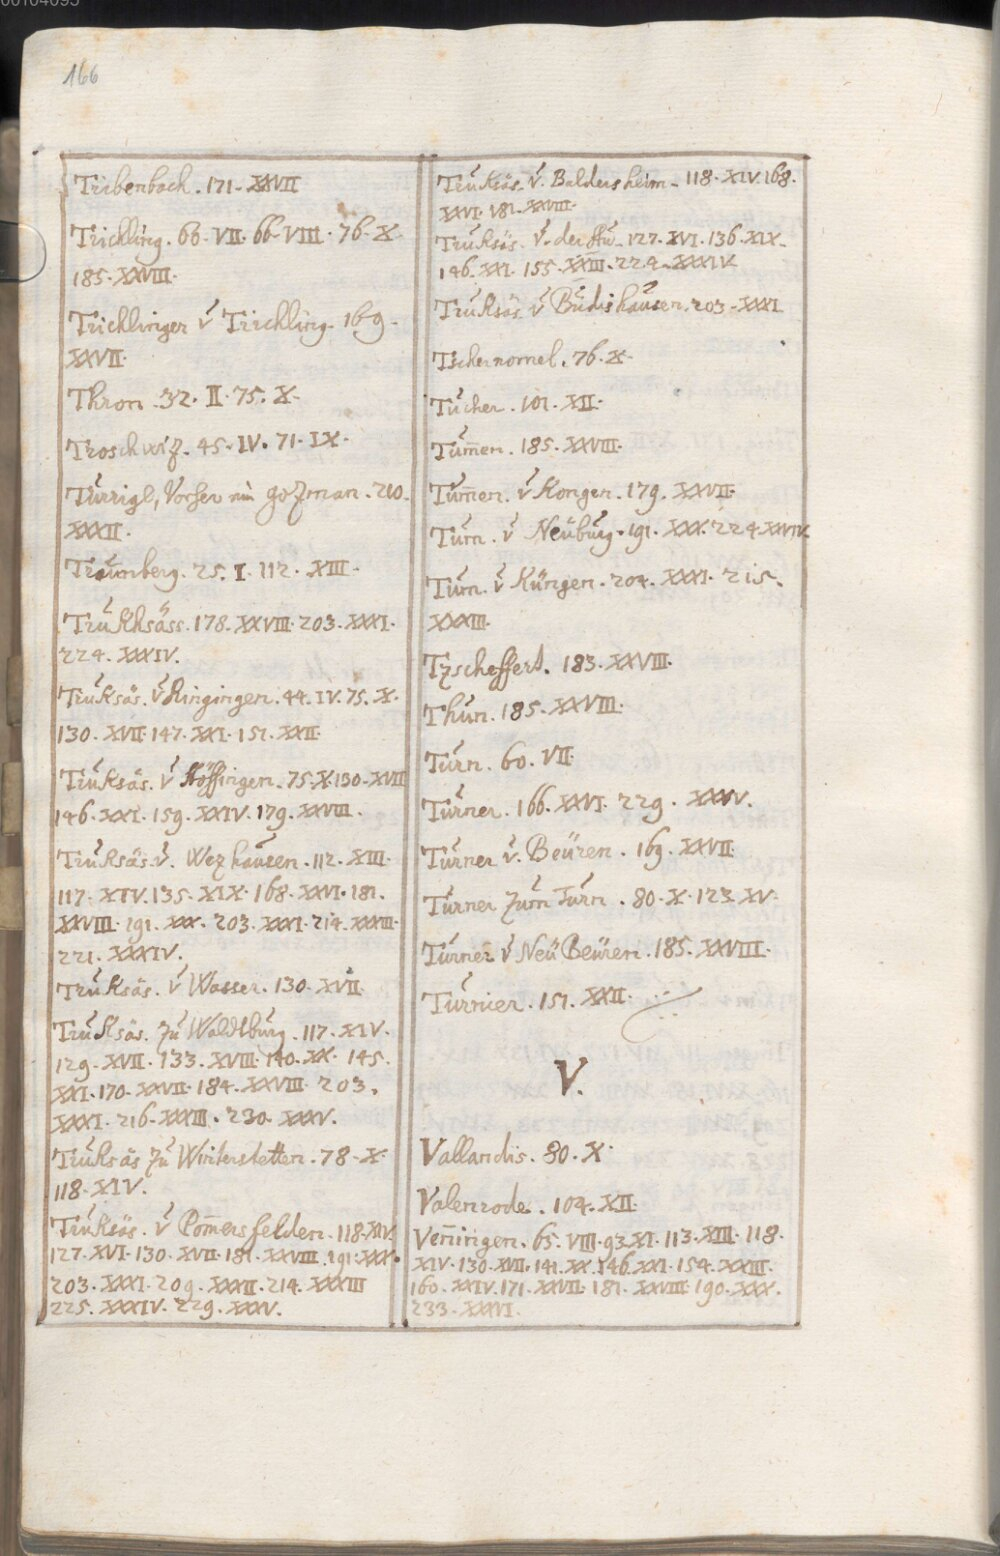 00104095
166
Tribenbach. 171. XXVII
Trichling. 66. VII. 66. VIII. 76. X.
185. XXVIII.
Trichlinger v̆ Trichling. 169.
XXVII.
Thron. 32. II. 75. X.
Troschwiz. 45. IV. 71. IX.
Türrigl, Vorher ein gozman. 210.
XXXII.
Traunberg. 25. I. 112. XIII.
Trukhsäss. 178. XXVIII. 203. XXXI.
224. XXXIV.
Truksäs. v̆ Ringingen. 44. IV. 75. X.
130. XVII. 147. XXI. 151. XXII
Truksäs. v̆ Höffingen. 75. X. 130. XVII
146. XXI. 159. XXIV. 179. XXVIII.
Truksäs. v̆. Wezhausen. 112. XIII.
117. XIV. 135. XIX. 168. XXVI. 181.
XXVIII. 191. XXX. 203. XXXI. 214. XXXIII.
221. XXXIV.
Truksäs. v̆ Wasser. 130. XVII.
Truksäs. zu Waldtburg. 117. XIV.
129. XVII. 133. XVIII. 140. XX. 145.
XXI. 170. XXVII. 184. XXVIII. 203.
XXXI. 216. XXXIII. 230. XXXV.
Truksäs zu Winterstetten. 78. X.
118. XIV.
Truksäs. v̆ Pom̄ersfelden. 118. XIV.
127. XVI. 130. XVII. 181. XXVIII. 191. XXX.
203. XXXI. 209. XXXII. 214. XXXIII
225. XXXIV. 229. XXXV.
Truksäs. v̆. Baldersheim. 118. XIV. 168.
XXVI. 181. XXVIII.
Truksäs. v̆. der 127. XVI. 136. XIX.
146. XXI. 155. XXIII. 224. XXXIV.
Truksäs. v̆ Budishausen. 203. XXXI
Tschernomel. 76. X.
Tucher. 101. XII.
Tum̄en. 185. XXVIII.
Tum̄en. v̆ Kongen. 179. XXVII.
Turn. v̆ Neuburg. 191. XXX. 224. XXXIV.
Turn. v̆ Küngen. 204. XXXI. 215.
XXXIII.
Tzscheffert. 183. XXVIII.
Thun. 185. XXVIII.
Turn. 60. VII.
Turner. 166. XXVI. 229. XXXV.
Turner v̆. Beüren. 169. XXVII
Turner zum Turn. 80. X. 123. XV.
Turner v̆ Neü Beüren. 185. XXVIII.
Turnier. 151. XXII.
V.
Vallandis. 80. X.
Valenrode. 104. XII.
Ven̄ingen. 65. VIII. 93. XI. 113. XIII. 118.
XIV. 130. XVII. 141. XX. 146. XXI. 154. XXIII.
160. XXIV. 171. XXVII. 181. XXVIII. 190. XXX.
233. XXXVI.